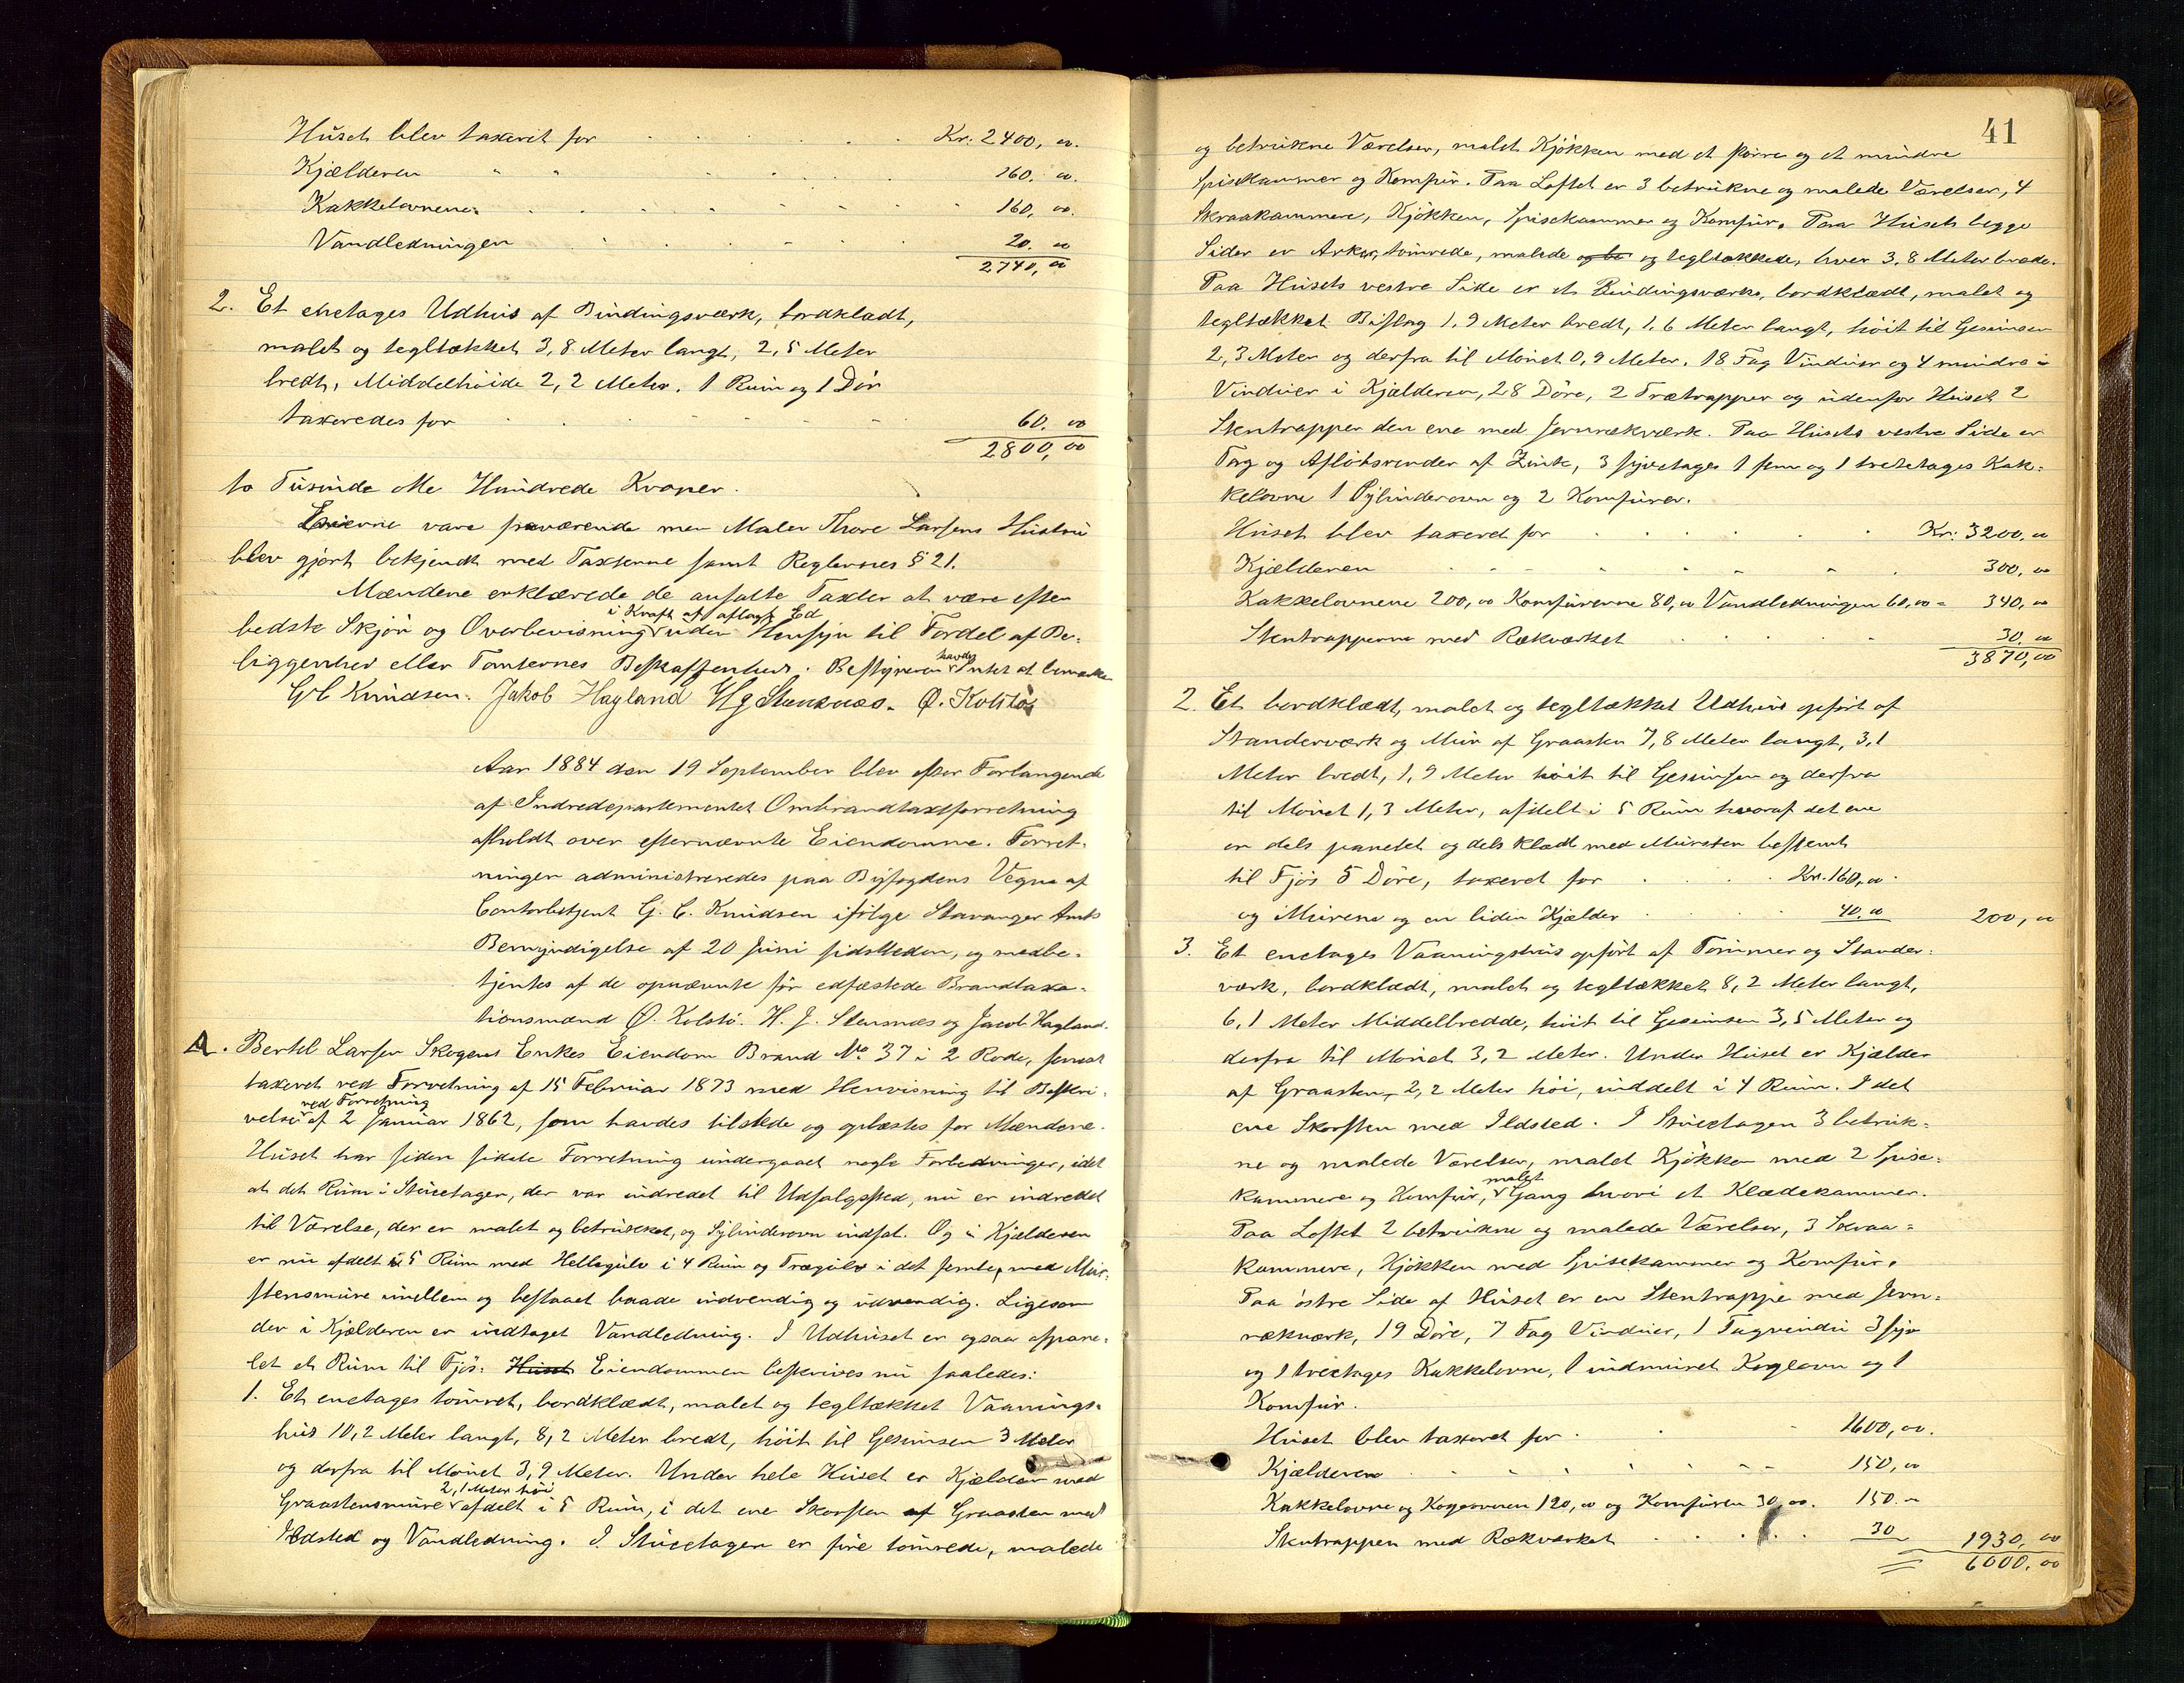 Huset blev taxeret for Kr: 2400, 00.
Kjælderen 160. 00.
Kakkelovnene 160, 00.
Vandledningen 20. 00
2740, 00
2. Et enetages Udhus af Bindingsværk, bordklædt,
malet og tegltækket 3,8 Meter langt, 2,5 Meter
bredt, Middelhöide 2,2 Meter. 1 Rum og 1 Dör
taxeredes for 60. 00
2800, 00
to Tusinde otte Hundrede Kroner.
Eierne vare fraværende men Maler Thore Larsens Hustru
blev gjort bekjendt med Taxterne samt Reglernes § 21.
Mændene erklærede de ansatte Taxter at være efter
i Kraft af aflagt Ed
bedste Skjön og Overbevisning uden Hensyn til Fordel af Be-
havde
liggenhed eller Tomternes Beskaffenhed. Bestyreren Intet at bemærke
G C Knudsen. Jakob Hagland H J Stensnæs. Ø. Kolstö
Aar 1884 den 19 September blev efter Forlangende
af Indredepartementet Ombrandtaxtforretning
afholdt over efternævnte Eiendomme. Forret-
ningen administreredes paa Byfogdens Vegne af
Contorbetjent G. C. Knudsen ifölge Stavanger Amts
Bemyndigelse af 20 Juni sidstleden, og medbe-
tjentes af de opnævnte för edfæstede Brandtaxa-
tionsmænd Ø. Kolstö. H. J. Stensnæs og Jacob Hagland.
A. Bertel Larsen Skogens Enkes Eiendom Brand No 37 i 2 Rode, senest
taxeret ved Forretning af 15 Februar 1873 med Henvisning til Beskri-
ved Forretning
velse af 2 Januar 1862, som havdes tilstede og oplæstes for Mændene.
Huset har siden sidste Forretning undergaaet nogle Forbedringer, idet
at det Rum i Stueetagen, der var indredet til Udsalgssted, nu er indredet
til Værelse, der er malet og betrukket, og Sylinderovn indsat. Og i Kjælderen
er nu afdelt i 5 Rum med Hellegulv i 4 Rum og Trægulv i det femte, med Mur-
stensmure imellem og beslaaet baade indvendig og udvendig. Ligesom
der i Kjælderen er indtaget Vandledning. I Udhuset er ogsaa afpane-
let et Rum til Fjös. Huset Eiendommen beskrives nu saaledes:
1. Et enetages tömret, bordklædt, malet og tegltækket Vaanings-
hus 10,2 Meter langt, 8,2 Meter bredt, höit til Gesimsen 3 Meter
og derfra til Mönet 3,9 Meter. Under hele Huset er Kjælder med
2,1 Meter höi
Graastensmure afdelt i 5 Rum, i det ene Skorsten af Graasten med
Ildsted og Vandledning. I Stueetagen er fire tömrede, malede
41
og betrukne Værelser, malet Kjökken med et större og et mindre
Spisekammer og Komfur. Paa Loftet er 3 betrukne og malede Værelser, 4
Skraakammere, Kjökken, Spisekammer og Komfur. Paa Husets begge
Sider er Arker, tömrede, malede og be og tegltækkede, hver 3,8 Meter brede.
Paa Husets vestre Side er et Bindingsværks, bordklædt, malet og
tegltækket Bislag 1,9 Meter bredt, 1,6 Meter langt, höit til Gesimsen
2,3 Meter og derfra til Mönet 0,9 Meter. 18 Fag Vinduer og 4 mindre
Vinduer i Kjælderen, 28 Döre, 2 Trætrapper og udenfor Huset 2
Stentrapper den ene med Jernrækværk. Paa Husets vestre Side er
Tag og Aflöbsrender af Zink, 3 syvetages 1 fem og 1 treetages Kak-
kelovne 1 Sylinderovn og 2 Komfurer.
Huset blev taxeret for Kr: 3200. 00
Kjælderen 300, 00
Kakkelovnene 200,00 Komfurerne 80,00 Vandledningen 60,00 = 340, 00
Stentrapperne med Rækværket 30. 00
3870,00
2. Et bordklædt, malet og tegltækket Udhus opfört af
Standerværk og Mur af Graasten 7,8 Meter langt, 3,1
Meter bredt, 1,9 Meter höit til Gesimsen og derfra
til Mönet 1,3 Meter, afdelt i 5 Rum hvoraf det ene
er dels panelet og dels klædt med Mursten bestemt
til Fjös 5 Döre, taxeret for Kr. 160,00.
og Murene og en liden Kjælder 40. 00 200, 00
3. Et enetages Vaaningshus opfört af Tömmer og Stander-
værk, bordklædt, malet og tegltækket 8,2 Meter langt,
6,1 Meter Middelbredde, höit til Gesimsen 3,5 Meter og
derfra til Mönet 3,2 Meter. Under Huset er Kjælder
af Graasten, 2,2 Meter höi, inddelt i 4 Rum. I det
ene Skorsten med Ildsted. I Stueetagen 3 betruk-
ne og malede Værelser, malet Kjökken med 2 Spise-
malet
kammere og Komfur, Gang hvori et Klædekammer.
Paa Loftet 2 betrukne og malede Værelser, 3 Skraa-
kammere, Kjökken med Spisekammer og Komfur.
Paa östre Side af Huset er en Stentrappe med Jern-
rækværk, 19 Döre, 7 Fag Vinduer, 1 Tagvindu 3 syv
og 1 treetages Kakkelovne, 1 indmuret Kogeovn og 1
Komfur.
Huset blev taxeret for 1600, 00.
Kjælderen 150, 00
Kakkelovne og Kogeovnen 120,00 og Komfuren 30,00. 150. -
Stentrappen med Rækværket 30 1930, 00
6000. 00